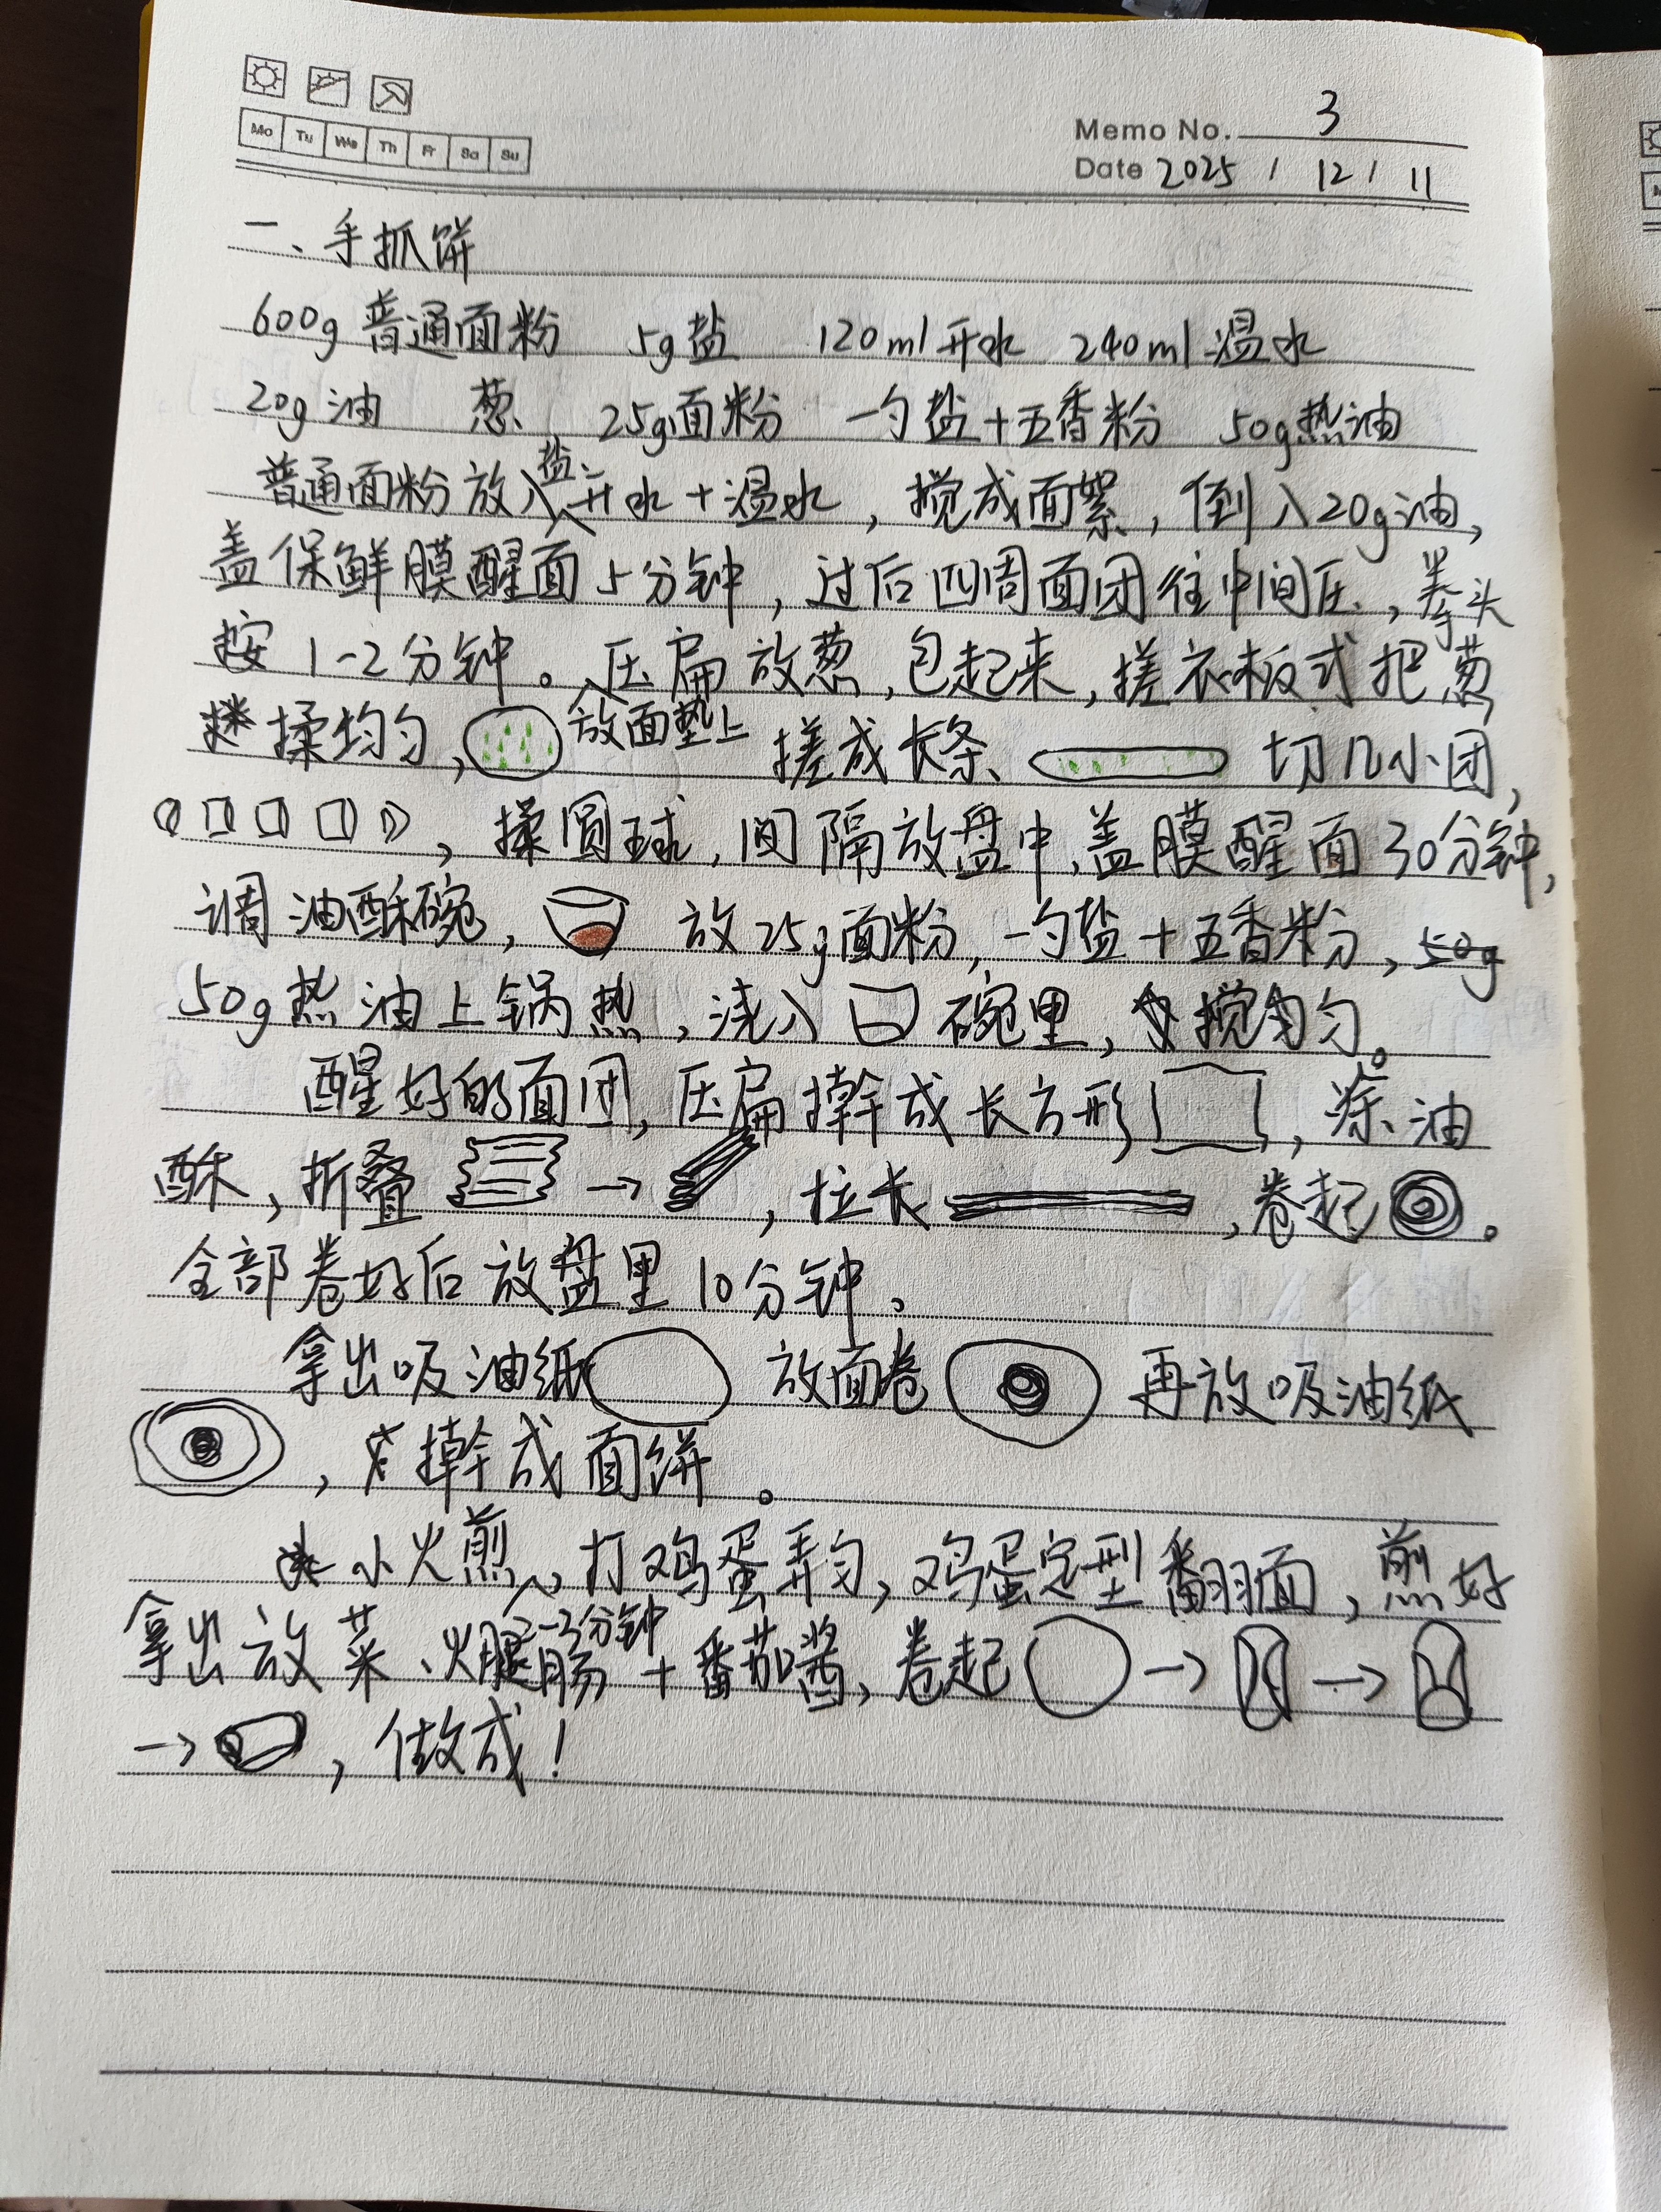 Mo Tu We Th Fr Sa Su
Memo No. 3
Date 2025 / 12 / 11
一、手抓饼
600g普通面粉 5g盐 120ml开水 240ml温水
20g油 葱 25g面粉 一勺盐+五香粉 50g热油
普通面粉放入盐、开水+温水，搅成面絮，倒入20g油，
盖保鲜膜醒面5分钟，过后四周面团往中间压，拳头
按1-2分钟。压扁放葱，包起来，搓衣板式把葱
揉均匀，放面垫上 搓成长条、 切几小团，
，揉圆球，间隔放盘中，盖膜醒面30分钟，
调油酥碗， 放25g面粉，一勺盐+五香粉，50g
50g热油上锅热，浇入 碗里，搅匀匀。
醒好的面团，压扁擀成长方形 ，涂油
酥，折叠 → ，拉长 ，卷起 。
全部卷好后放盘里10分钟。
拿出吸油纸 放面卷 再放吸油纸
，擀成面饼。
小火煎2-3分钟，打鸡蛋弄匀，鸡蛋定型翻面，煎好
拿出放菜、火腿肠+番茄酱，卷起 → →
→ ，做成！